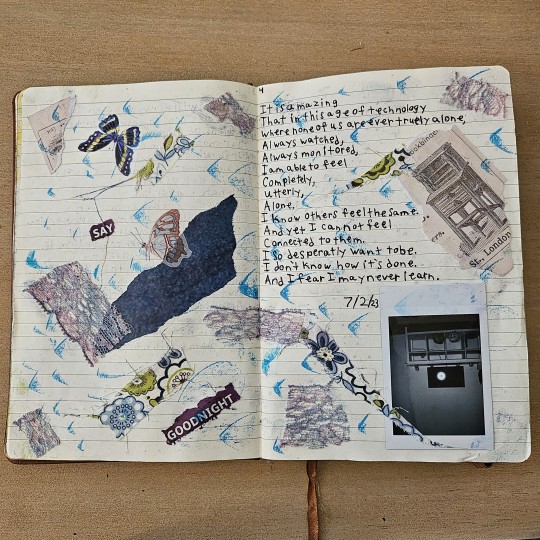 SAY
GOODNIGHT
4
It is amazing
That in this age of technology
where none of us are ever truely alone,
Always watched,
Always monitored,
I am able to feel
Completely,
Utterly,
Alone,
I know others feel the same.
And yet I cannot feel
Connected to them.
I so desperatly want to be.
I don't know how it's done.
And I fear I may never learn.
7/2/23
St., London